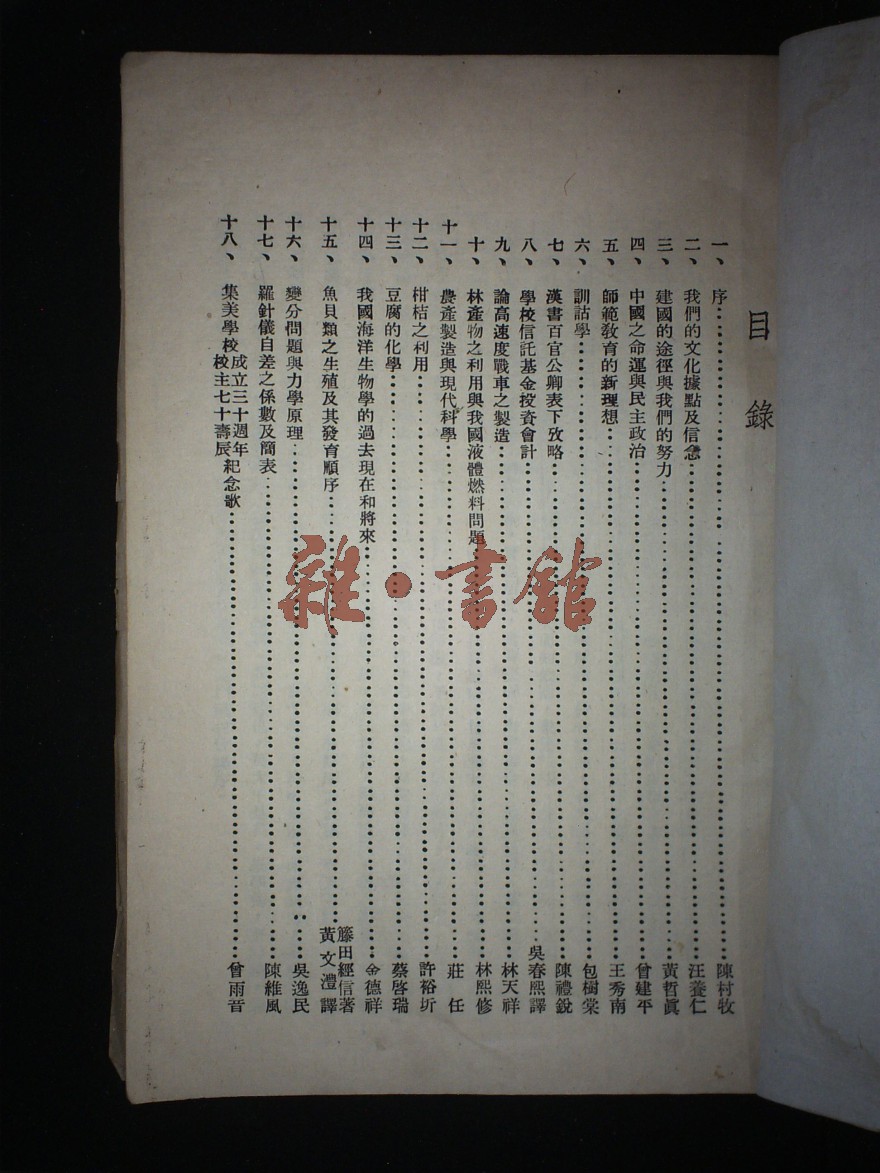 目錄
一、序……陳村牧
二、我們的文化據點及信念……汪養仁
三、建國的途徑與我們的努力……黃哲眞
四、中國之命運與民主政治……曾建平
五、師範敎育的新理想……王秀南
六、訓詁學……包樹棠
七、漢書百官公卿表下攷略……陳禮銳
八、學校信託基金投資會計……吳春熙譯
九、論高速度戰車之製造……林天祥
十、林產物之利用與我國液體燃料問題……林熙修
十一、農產製造與現代科學……莊任
十二、柑桔之利用……許裕圻
十三、豆腐的化學……蔡啓瑞
十四、我國海洋生物學的過去現在和將來……金德祥
十五、魚貝類之生殖及其發育順序……籐田經信著 黃文澧譯
十六、變分問題與力學原理……吳逸民
十七、羅針儀自差之係數及簡表……陳維風
十八、集美學校成立三十週年校主七十壽辰紀念歌……曾雨音
雜·書館